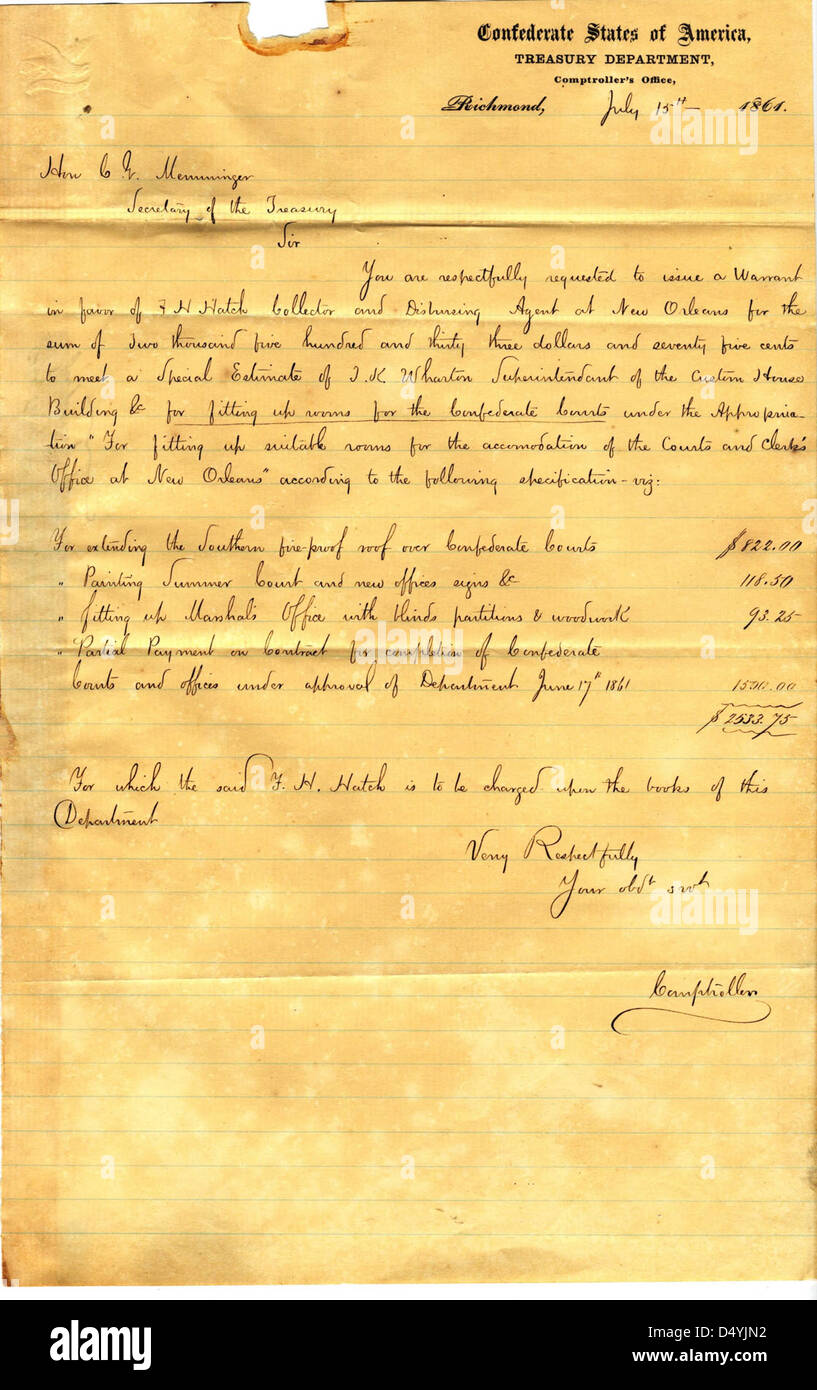 Confederate States of America,
TREASURY DEPARTMENT,
Comptroller's Office,
Richmond, July 15th 1861.
Hon C. G. Memminger
Secretary of the Treasury
Sir
You are respectfully requested to issue a Warrant
in favor of F H Hatch Collector and Disbursing Agent at New Orleans for the
sum of Two thousand five hundred and thirty three dollars and seventy five cents
to meet a Special Estimate of T. K Wharton Superintendant of the Custom House
Building &c for fitting up rooms for the Confederate Courts under the Appropria-
tion "For fitting up suitable rooms for the accomodation of the Courts and Clerk's
Office at New Orleans" according to the following specification - viz:
For extending the Southern fire-proof roof over Confederate Courts $822.00
" Painting Summer Court and new offices signs &c 118.50
" fitting up Marshal's Office with blinds partitions & woodwork 93.25
" Partial Payment on Contract for completion of Confederate
Courts and offices under approval of Department June 17th 1861 1500.00
$2533.75
For which the said F. H. Hatch is to be charged upon the books of this
Department
Very Respectfully
Your obdt svt
Comptroller
alamy
Image ID: D4YJN2
www.alamy.com